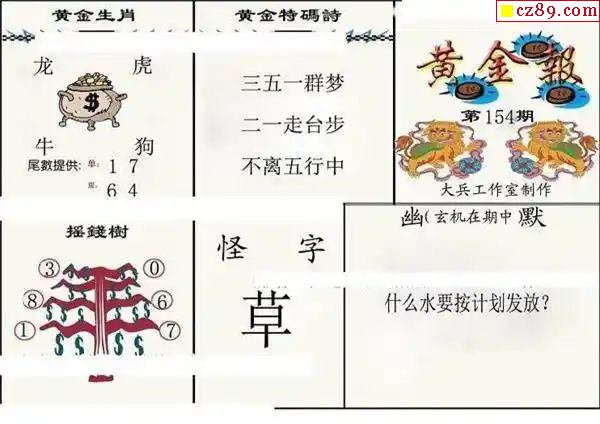 黄金生肖
龙 虎
$
牛 狗
尾數提供: 单: 1 7
双: 6 4
黄金特碼詩
三五一群梦
二一走台步
不离五行中
cz89.com
黄金報
第154期
大兵工作室制作
摇錢樹
③ ⓪
⑧ ⑥
① ⑦
$ $
$ $ $ $
$ $ $ $
怪 字
草
幽(玄机在期中)默
什么水要按计划发放?